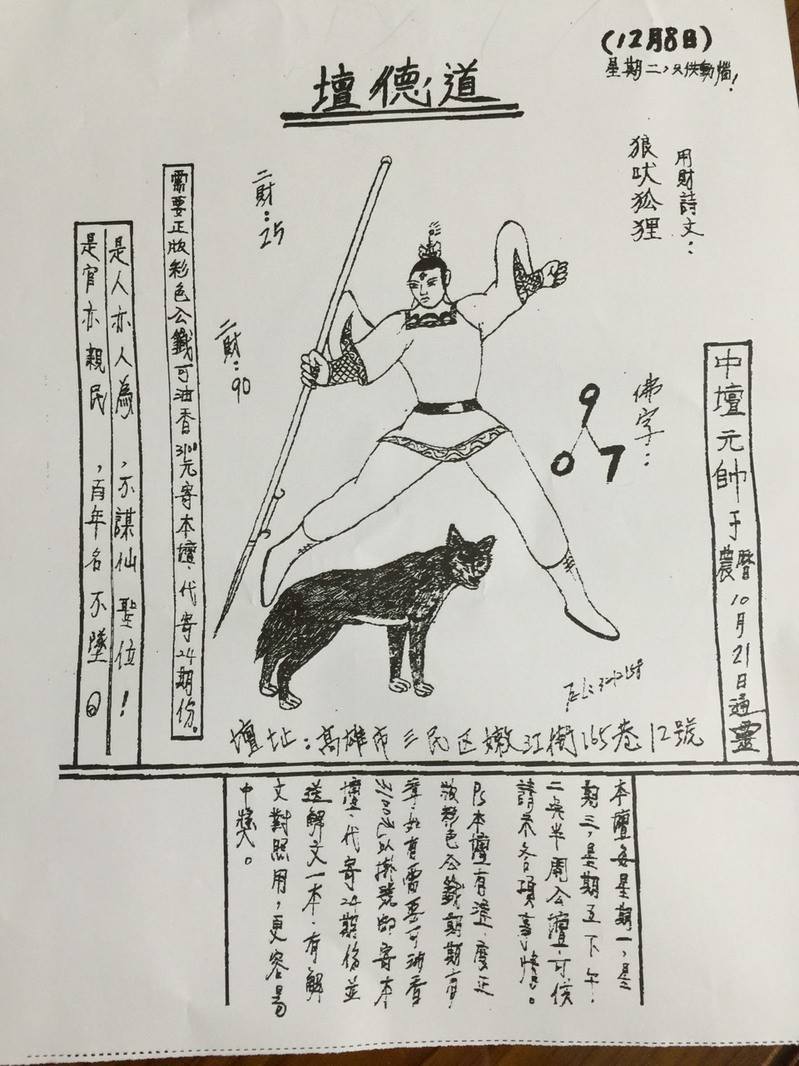 (12月8日)
星期二,又供動惱!
壇德道
用財詩文:
狼吠狐狸
二財:25
三財:90
佛字:
9
0 7
中壇元帥于農曆10月21日通靈
需要正版彩色公籤可油香3100元寄本壇.代寄24期份。
是人亦人為,不謀仙聖位!
是官亦親民,百年名不墜。
壇址:高雄市三民區嫩江街165巷12號
本壇每星期一,星
期三,星期五下午:
二點半開公壇,可候
請示各項事情。
P.S本壇有澄.慶正
版彩色公籤期期有
準.如有需要可油香
以掛號郵寄本
壇.代寄24期份並
送解文一本.有解
文對照用,更容易
中獎。